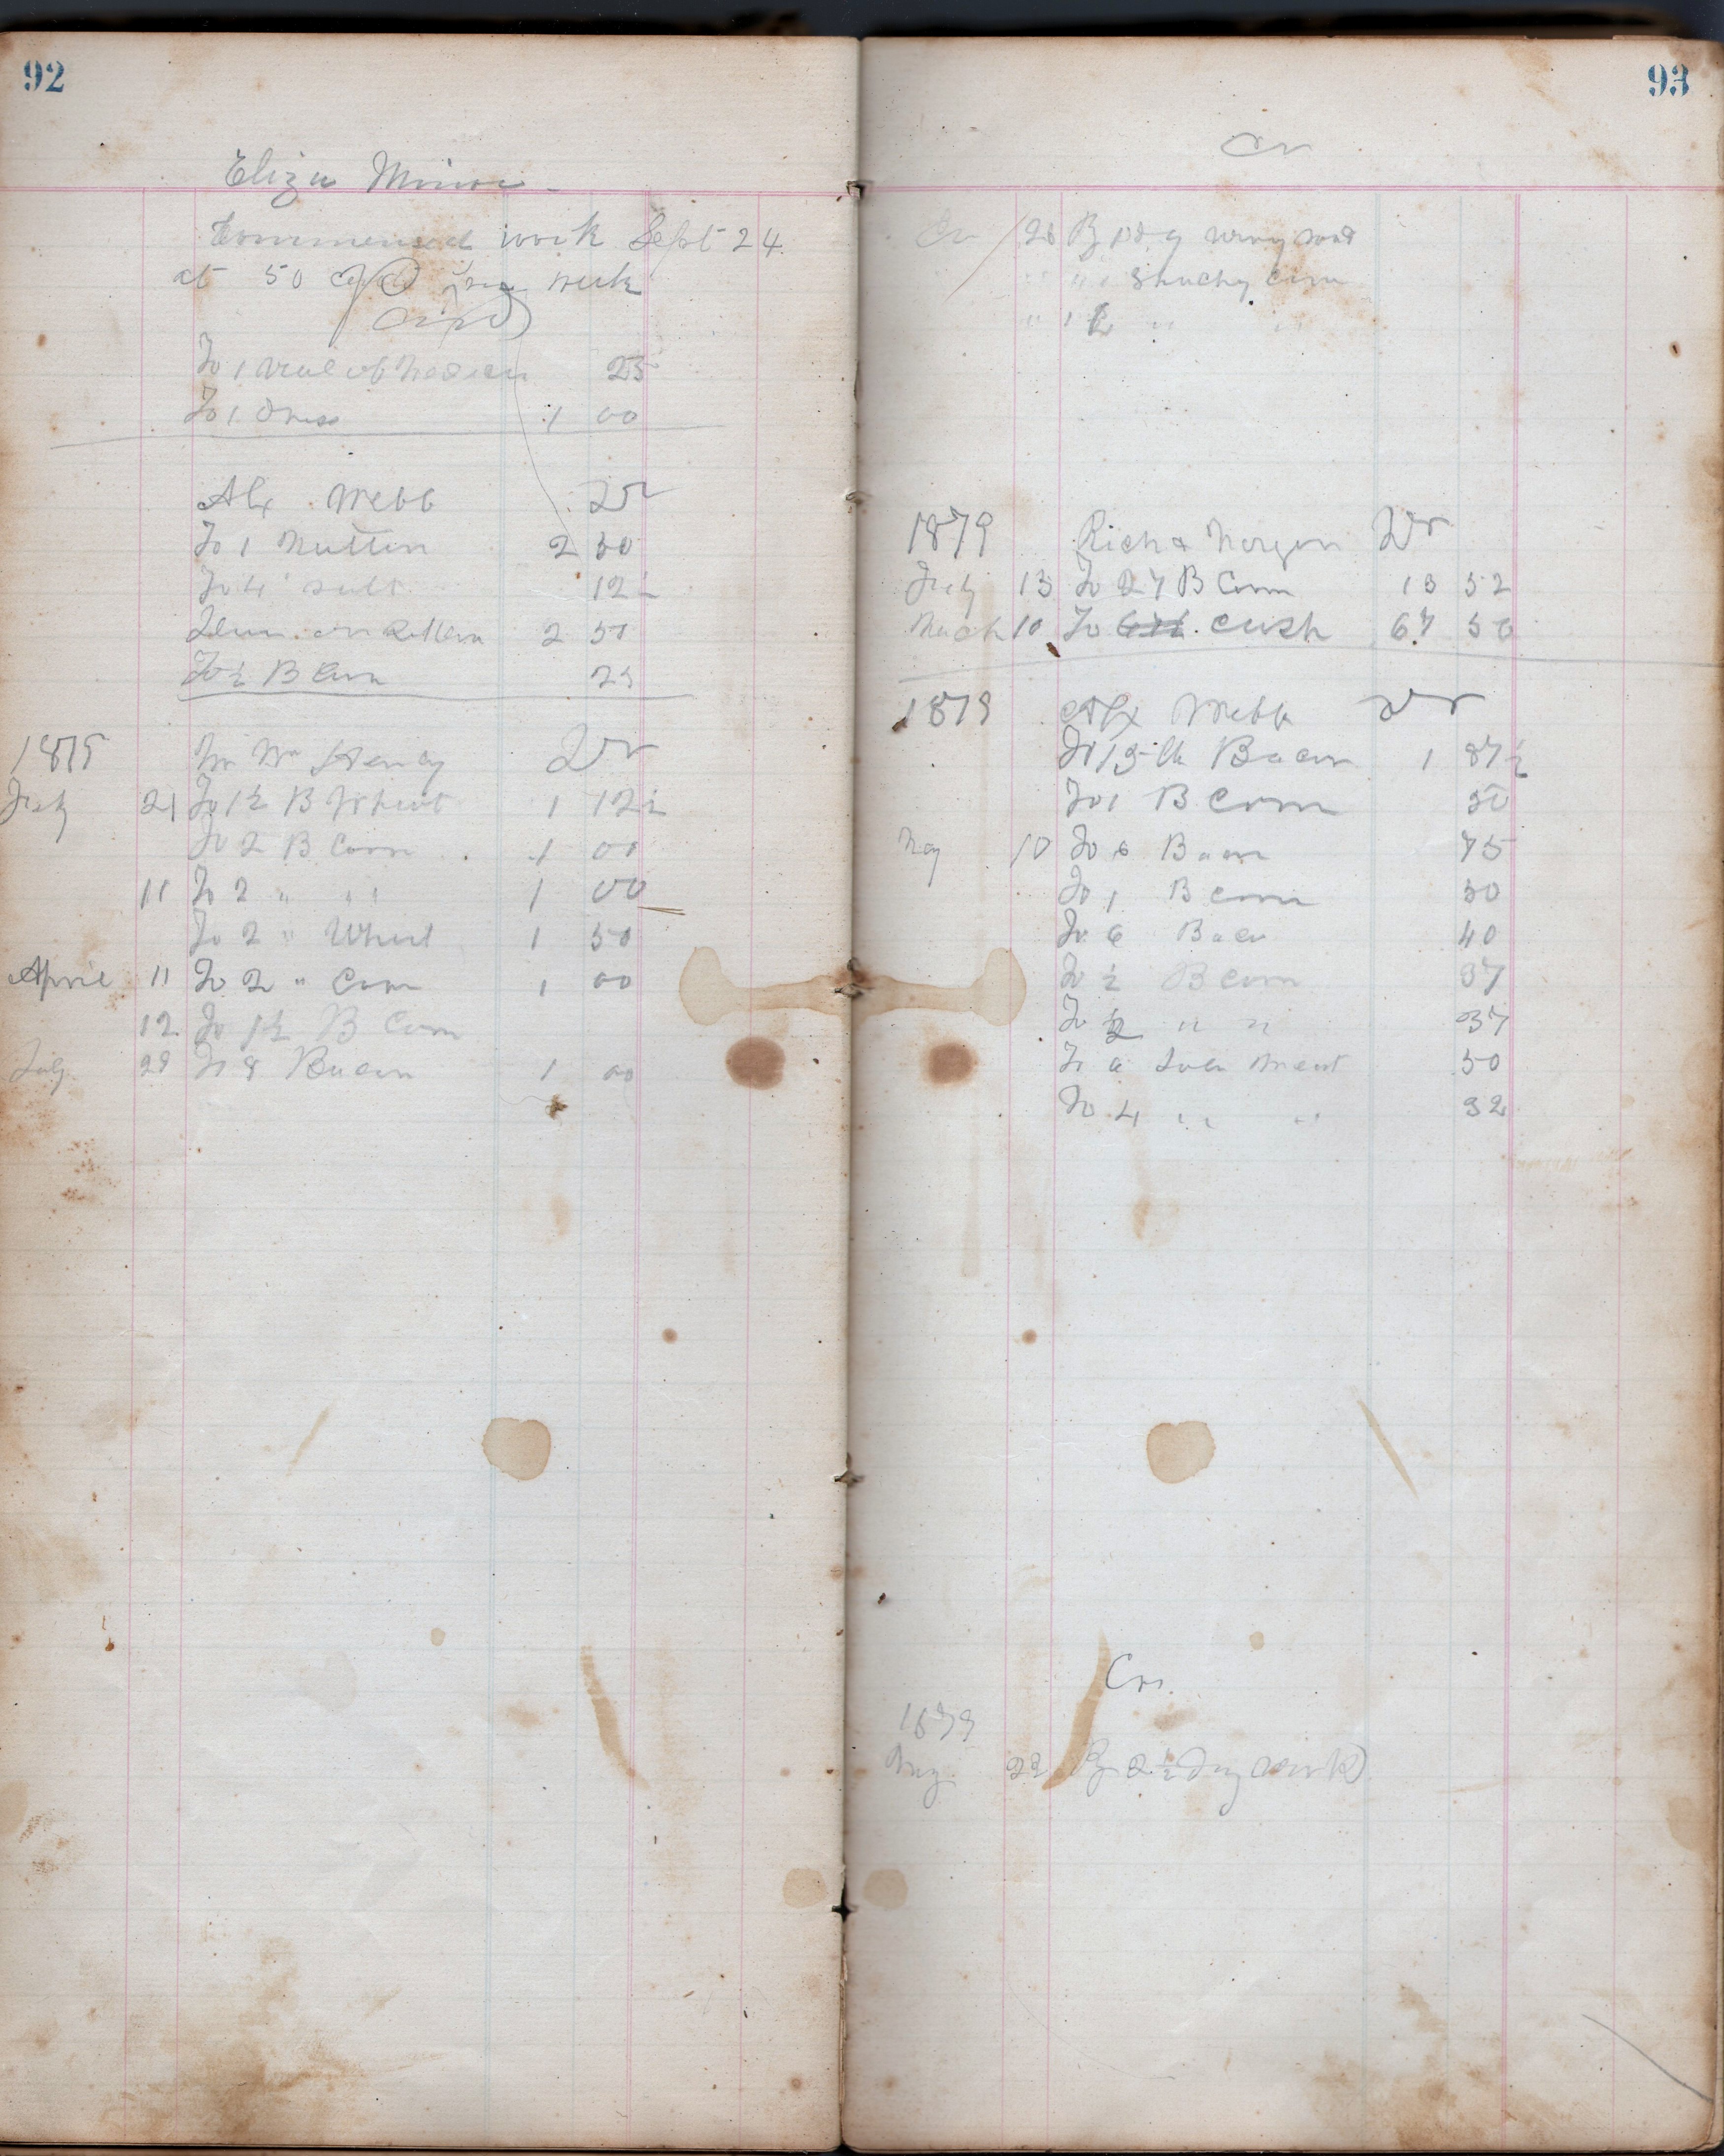 92
Eliza Minor
Commenced work Sept 24
at 50 per week
To 1 of 25
To 1 Dress 1 00
Alx Webb Dr
To 1 Mutton 2 50
To 4 " Salt 12½
2 50
To ½ B Corn 25
1879 Mr Wm Henry Dr
Feby 21 To 1½ B Wheat 1 12½
To 2 B Corn 1 00
11 To 2 " " 1 00
To 2 " Wheat 1 50
April 11 To 2 " Corn 1 00
12 To 1½ B Corn
July 28 To 8 Bacon 1 00
93
Cr
Cr 26 By 1 day
" " " Shucking Corn
" 1 ½ " "
1879 Richd Morgan Dr
Feby 13 To 27 B Corn 13 52
March 10 To Cash 67 50
1879 Alx Webb Dr
To 15 lb Bacon 1 87½
To 1 B Corn 50
May 10 To 6 Bacon 75
To 1 B Corn 50
To 6 Bacon 40
To ½ B Corn 37
To ½ " " 37
To 6 Meat 50
To 4 " " 32
Cr
1879
Aug 22 By 2½ Day work